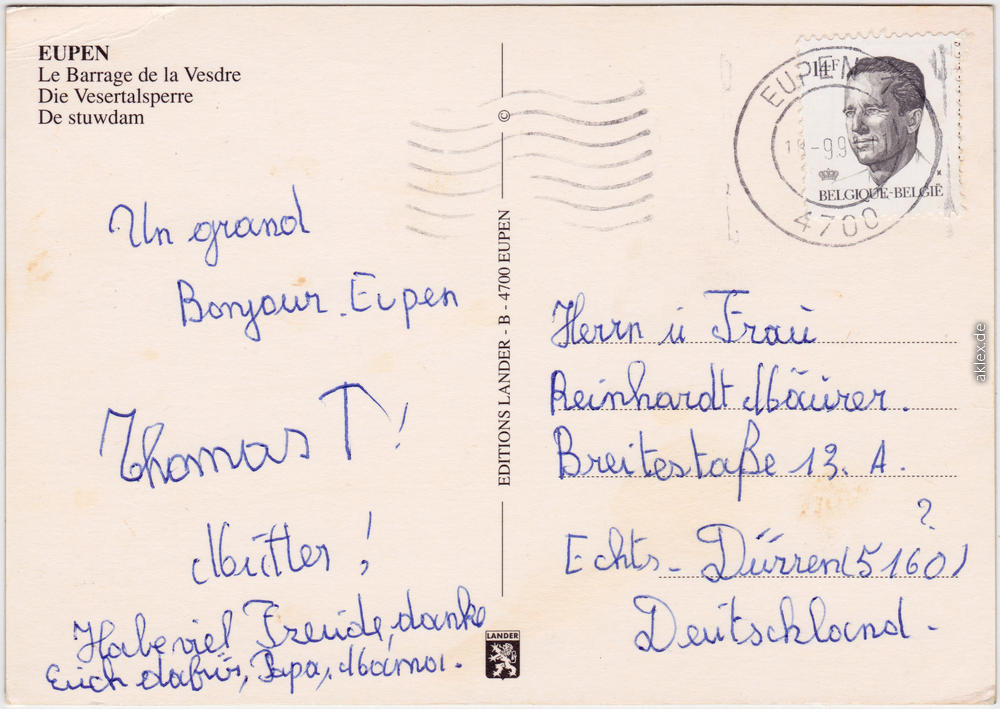 EUPEN
Le Barrage de la Vesdre
Die Vesertalsperre
De stuwdam
Un grand
Bonjour. Eupen
Thomas T!
Mütter!
Habe viel Freude, danke
Euch dafür, Papa, Mama.
EDITIONS LANDER - B - 4700 EUPEN
©
LANDER
14F
BELGIQUE-BELGIË
EUPEN
4700
Herrn u Frau
Reinhardt Mäurer.
Breitestaße 13. A.
?
Echts - Dürren (5160)
Deutschland.
aklex.de